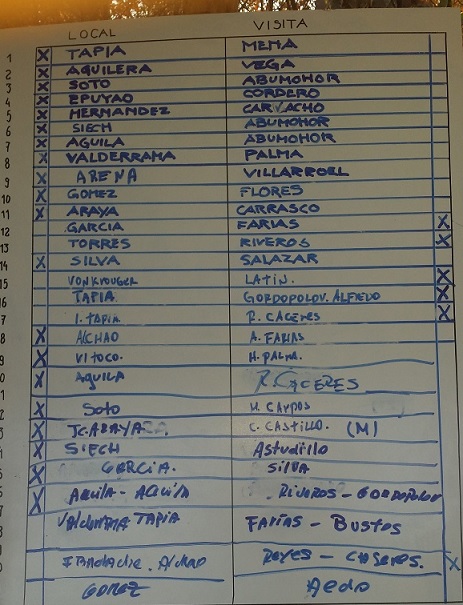 LOCAL VISITA
1 X TAPIA MENA
2 X AGUILERA VEGA
3 X SOTO ABUMOHOR
4 X EPUYAO CORDERO
5 X HERNANDEZ CARVACHO
6 X SIECH ABUMOHOR
7 X AGUILA ABUMOHOR
8 X VALDERRAMA PALMA
9 X ARENA VILLARROEL
10 X GOMEZ FLORES
11 X ARAYA CARRASCO
12 GARCIA FARIAS X
13 TORRES RIVEROS X
14 X SILVA SALAZAR
15 LATIN. X
16 TAPIA GORDOPOLOV. ALFREDO X
7 I. TAPIA R. CACERES X
8 X ALCHAO A. FARIAS
9 X VITOCO. H. PALMA.
0 X AGUILA R. CACERES
2 X Soto
3 X JC. ARAYA C. CASTILLO. (M)
4 X SIECH Astudillo
5 X GARCIA. SILVA
6 X AGUILA - AGUILA RIVEROS - GORDOPOLOV
TAPIA FARIAS - BUSTOS
REYES - X
GOMEZ Aedo